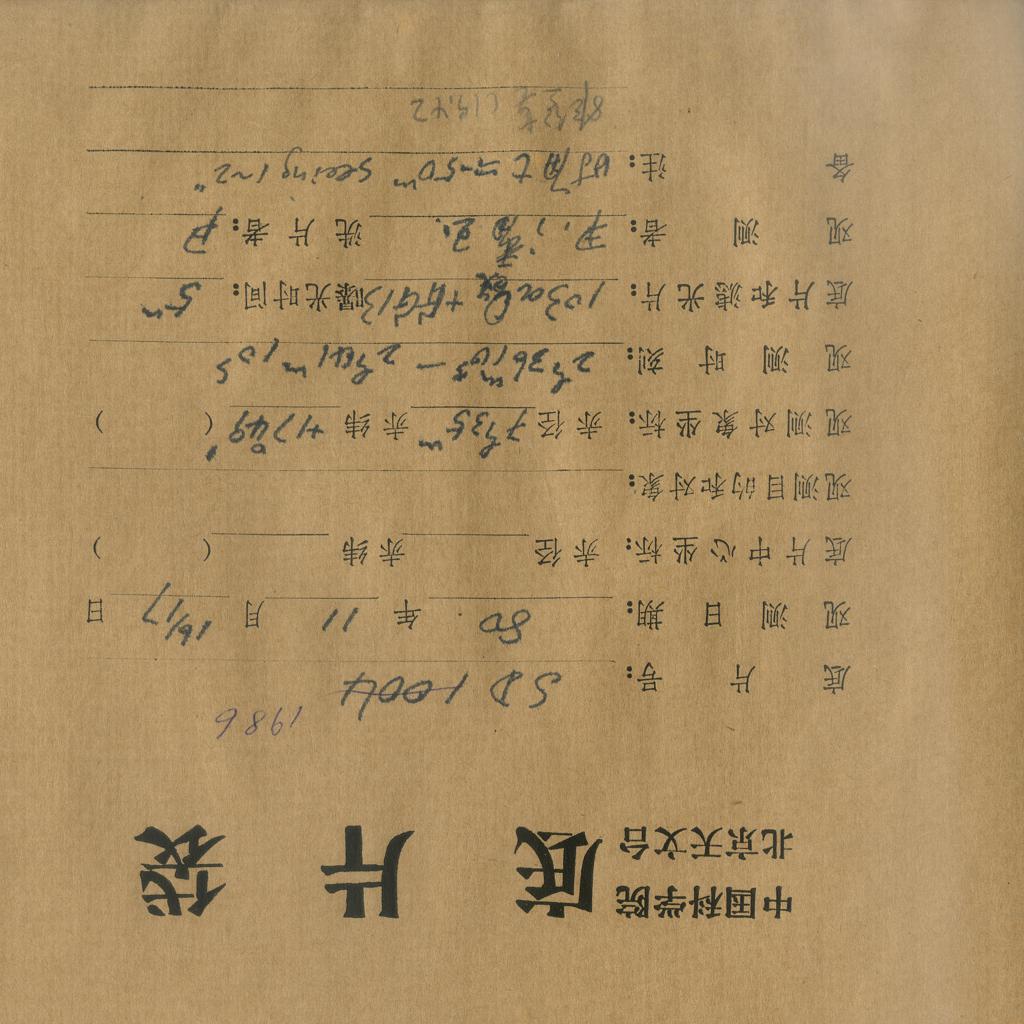 中国科学院
北京天文台
底片袋
1986
底片号: SP 1004
观测日期: 80年 11月 16/17日
底片中心坐标: 赤径 赤纬 ( )
观测目的和对象:
观测对象坐标: 赤径 7h35m 赤纬 +17°49' ( )
观测时刻: 2h36m10s — 2h41m10s
底片和滤光片: 103a + GG13 曝光时间: 5m
观测者: 洗片者:
备注: 时角 t=-50m seeing 1~2"